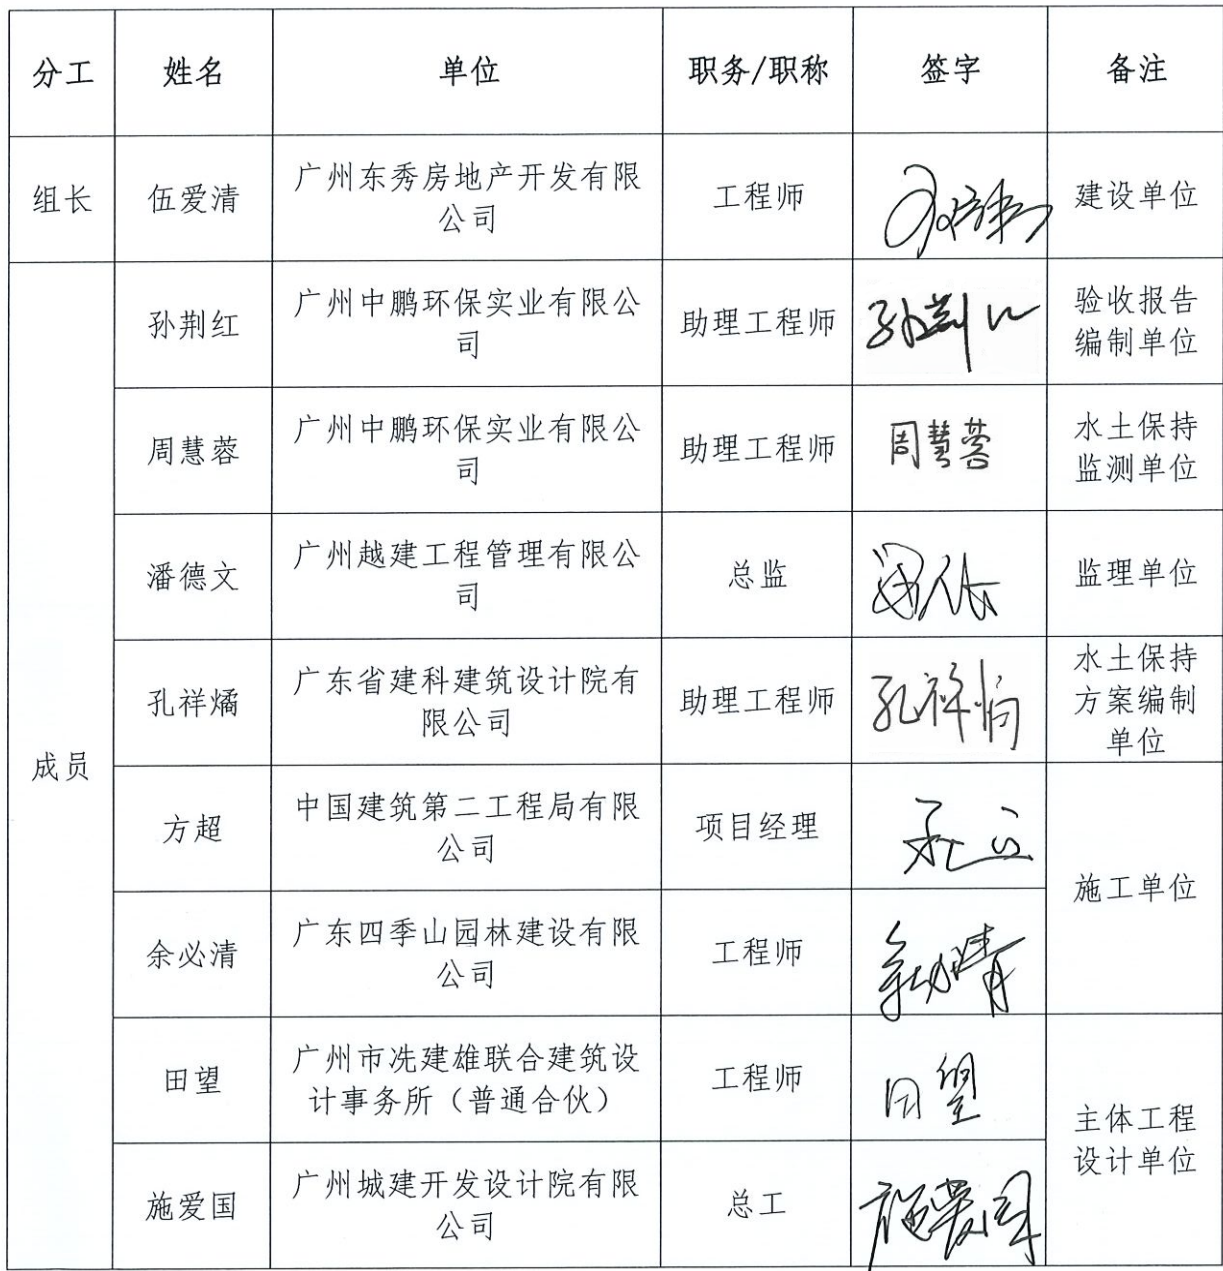 分工 姓名 单位 职务/职称 签字 备注
组长 伍爱清 广州东秀房地产开发有限
公司 工程师 建设单位
成员
孙荆红 广州中鹏环保实业有限公
司 助理工程师 孙荆红 验收报告
编制单位
周慧蓉 广州中鹏环保实业有限公
司 助理工程师 周慧蓉 水土保持
监测单位
潘德文 广州越建工程管理有限公
司 总监 监理单位
孔祥燏 广东省建科建筑设计院有
限公司 助理工程师 水土保持
方案编制
单位
方超 中国建筑第二工程局有限
公司 项目经理 施工单位
余必清 广东四季山园林建设有限
公司 工程师
田望 广州市冼建雄联合建筑设
计事务所（普通合伙） 工程师 田望 主体工程
设计单位
施爱国 广州城建开发设计院有限
公司 总工 施爱国